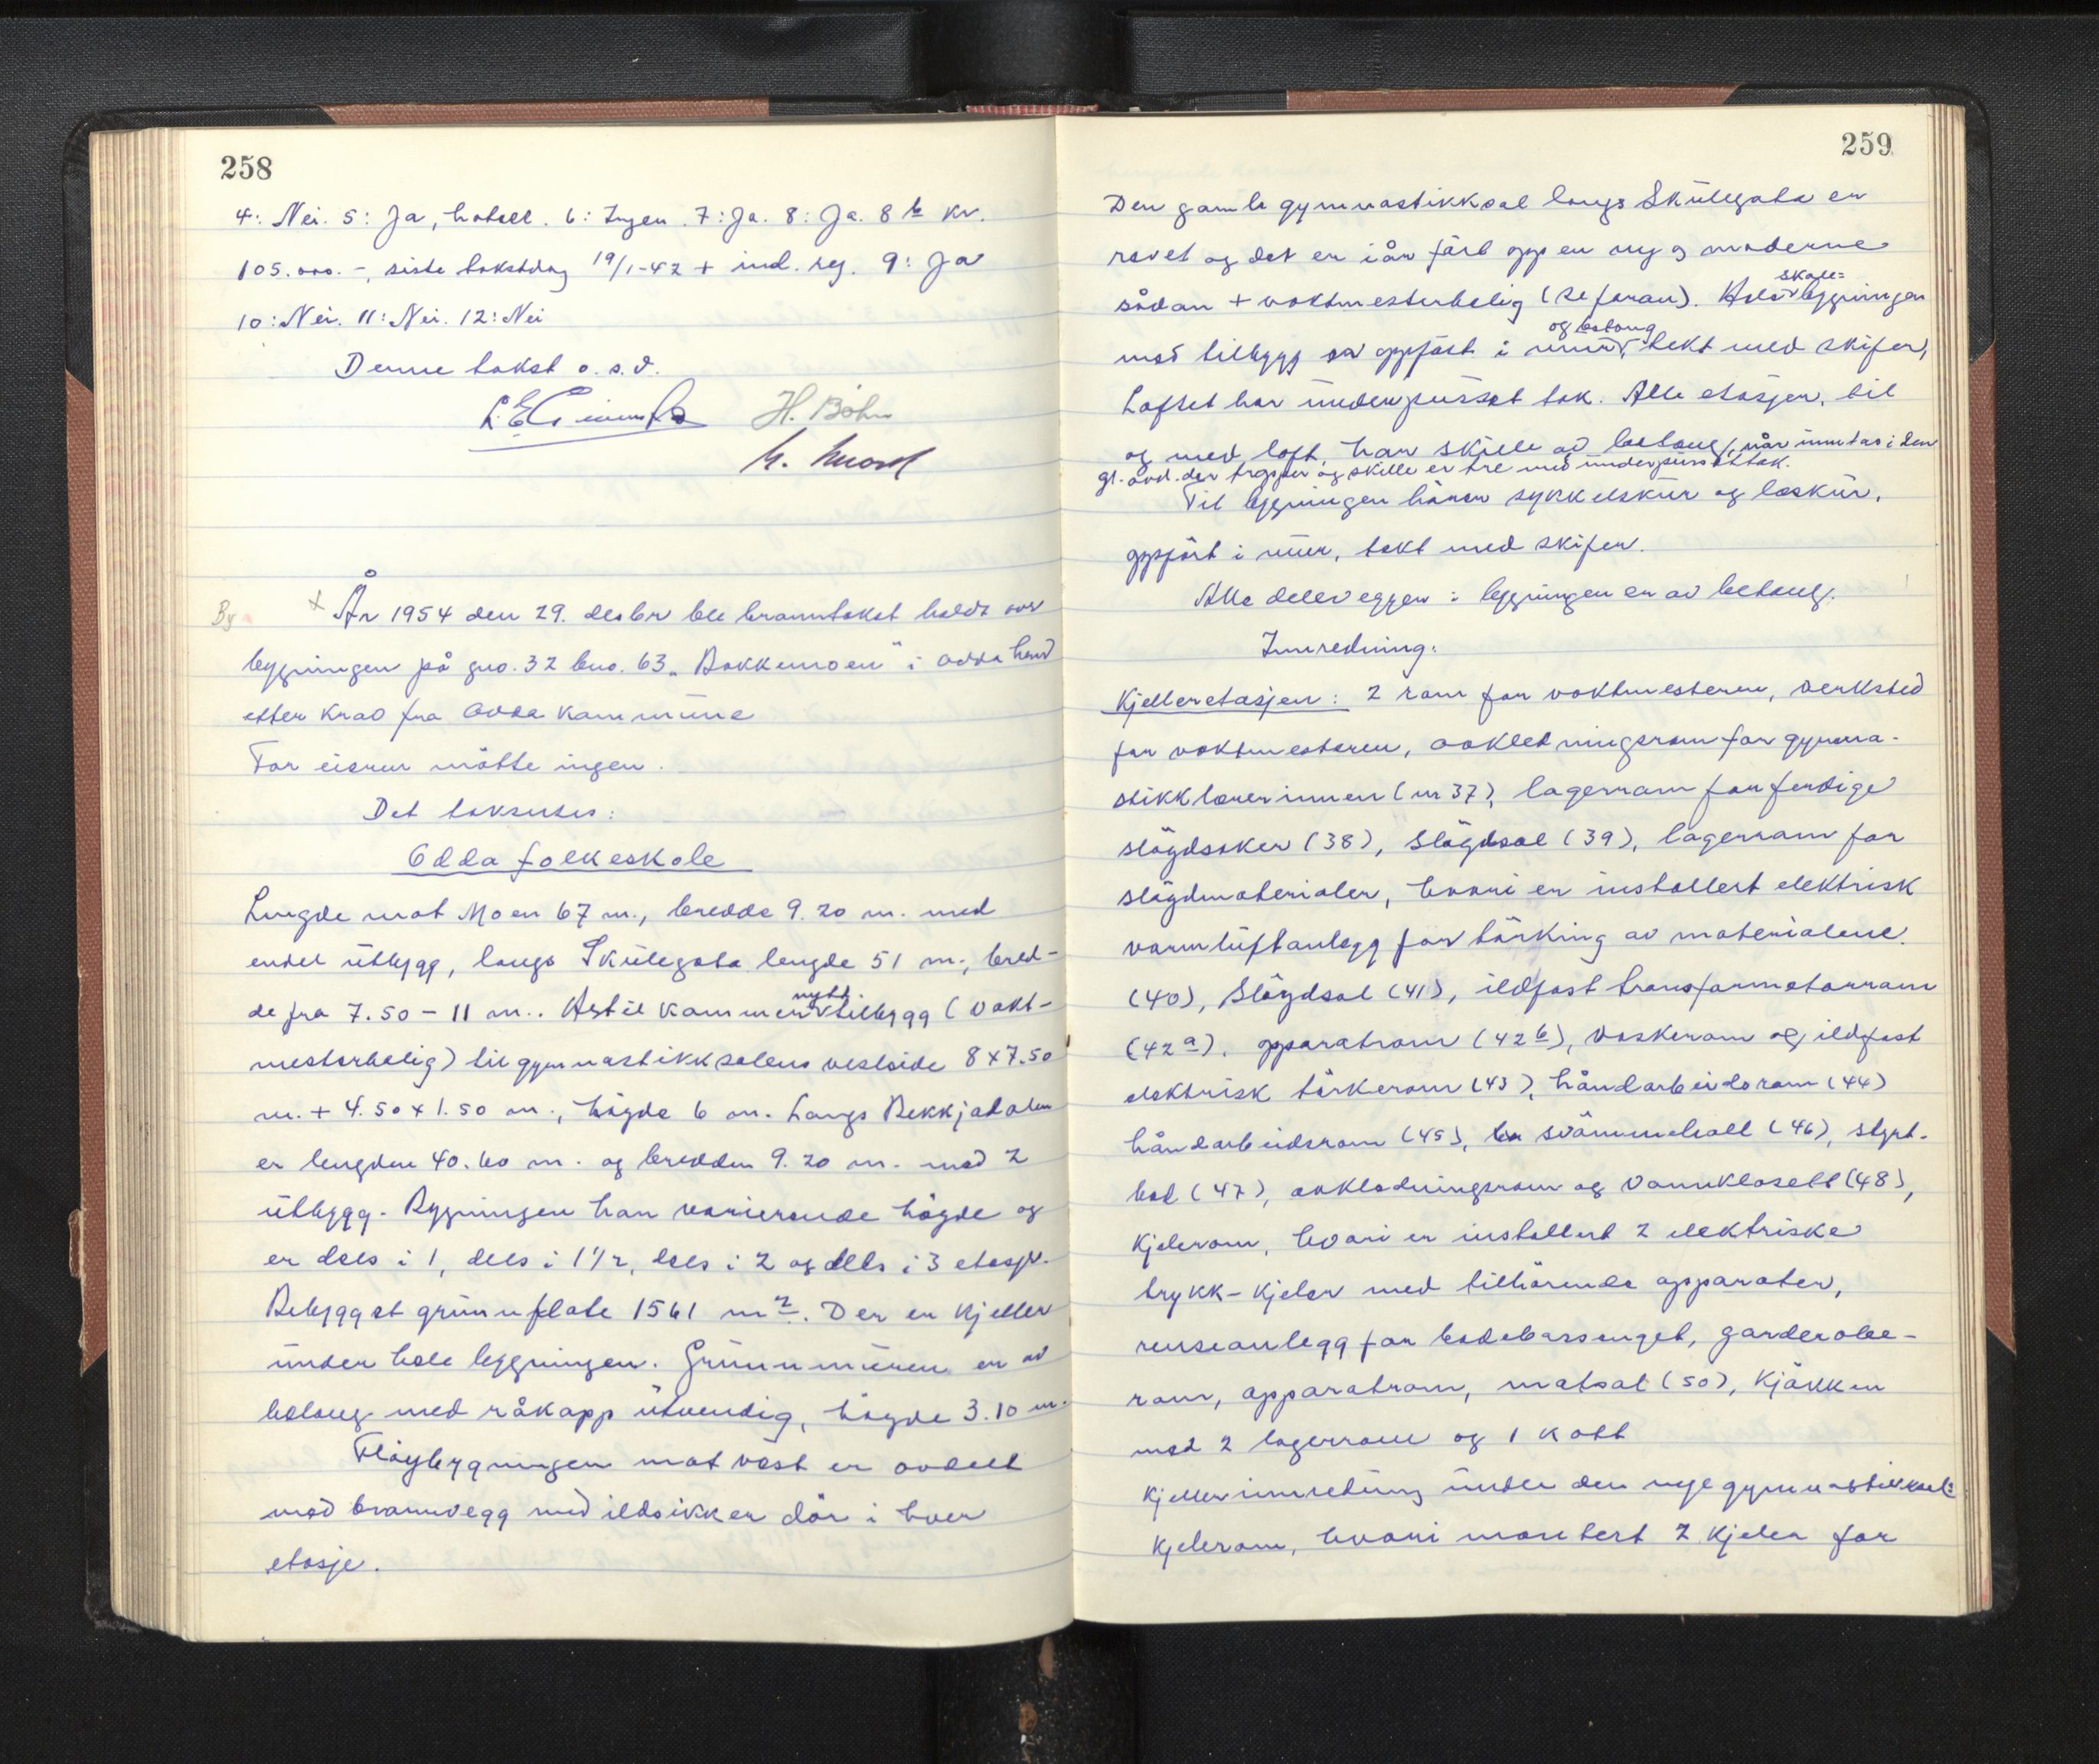 258
4: Nei. 5: Ja, hotell. 6: Ingen. 7: Ja. 8: Ja. 8 b kr.
105.000.-, siste takstdag 19/1-42 + ind. reg. 9: Ja
10: Nei. 11: Nei. 12: Nei
Denne takst o.s.v.
H. Böhn
By
+ År 1954 den 29. desbr ble branntakst holdt over
bygningen på gno. 32 bno. 63 „Bakkemoen" i Odda herred
etter krav fra Odda kommune
For eieren møtte ingen.
Det takseres:
Odda folkeskole
Lengde mot Moen 67 m., bredde 9.20 m. med
endel utbygg, langs Skulegata lengde 51 m., bred-
de fra 7.50 - 11 m.. Hertil kommer nytt tilbygg (vakt-
mesterbolig) til gymnastikksalens vestside 8 x 7.50
m. + 4.50 x 1.50 m., högde 6 m. Langs Bekkjadalen
er lengden 40.60 m. og bredden 9.20 m. med 2
utbygg. Bygningen har varierende högde og
er dels i 1, dels i 1 1/2, dels i 2 og dels i 3 etasjer.
Bebygget grunnflate 1561 m². Der er kjeller
under hele bygningen. Grunnmuren er av
betong med råkapp utvendig, högde 3.10 m.
Flöybygningen mot vest er avdelt
med brannvegg med ildsikker dör i hver
etasje.
259
Den gamle gymnastikksal langs Skulegata er
revet og det er i år fört opp en ny og moderne
sådan + vaktmesterbolig (se foran). Hele skole=bygningen
med tilbygg er oppfört i mur og betong, tekt med skifer,
Loftet har underpusset tak. Alle etasjer, til
og med loft, har skille av betong, når unntas i den
gl. avd. der trapper og skille er tre med underpusset tak.
Til bygningen hörer sykkelskur og leskur,
oppfört i mur, tekt med skifer.
Alle delevegger i bygningen er av betong.
Innredning:
Kjelleretasjen: 2 rom for vaktmesteren, verksted
for vaktmesteren, avkledningsrom for gymna-
stikklærerinnen (nr 37), lagerrom for ferdige
slöydsaker (38), Slöydsal (39), lagerrom for
slöydmaterialer, hvori er installert elektrisk
varmluftanlegg for törking av materialene.
(40), Slöydsal (41), ildfast transformatorrom
(42 a), apparatrom (42 b), vaskerom og ildfast
elektrisk törkerom (43), håndarbeidsrom (44)
håndarbeidsrom (45), svömmehall (46), styrt-
bad (47), avkledningsrom og vannklosett (48),
Kjelerom, hvori er installert 2 elektriske
trykk-kjeler med tilhörende apparater,
renseanlegg for badebassenget, garderobe-
rom, apparatrom, matsal (50), kjökken
med 2 lagerrom og 1 kott
Kjellerinnredning under den nye gymnastikksal:
Kjelerom, hvori montert 2 kjeler for